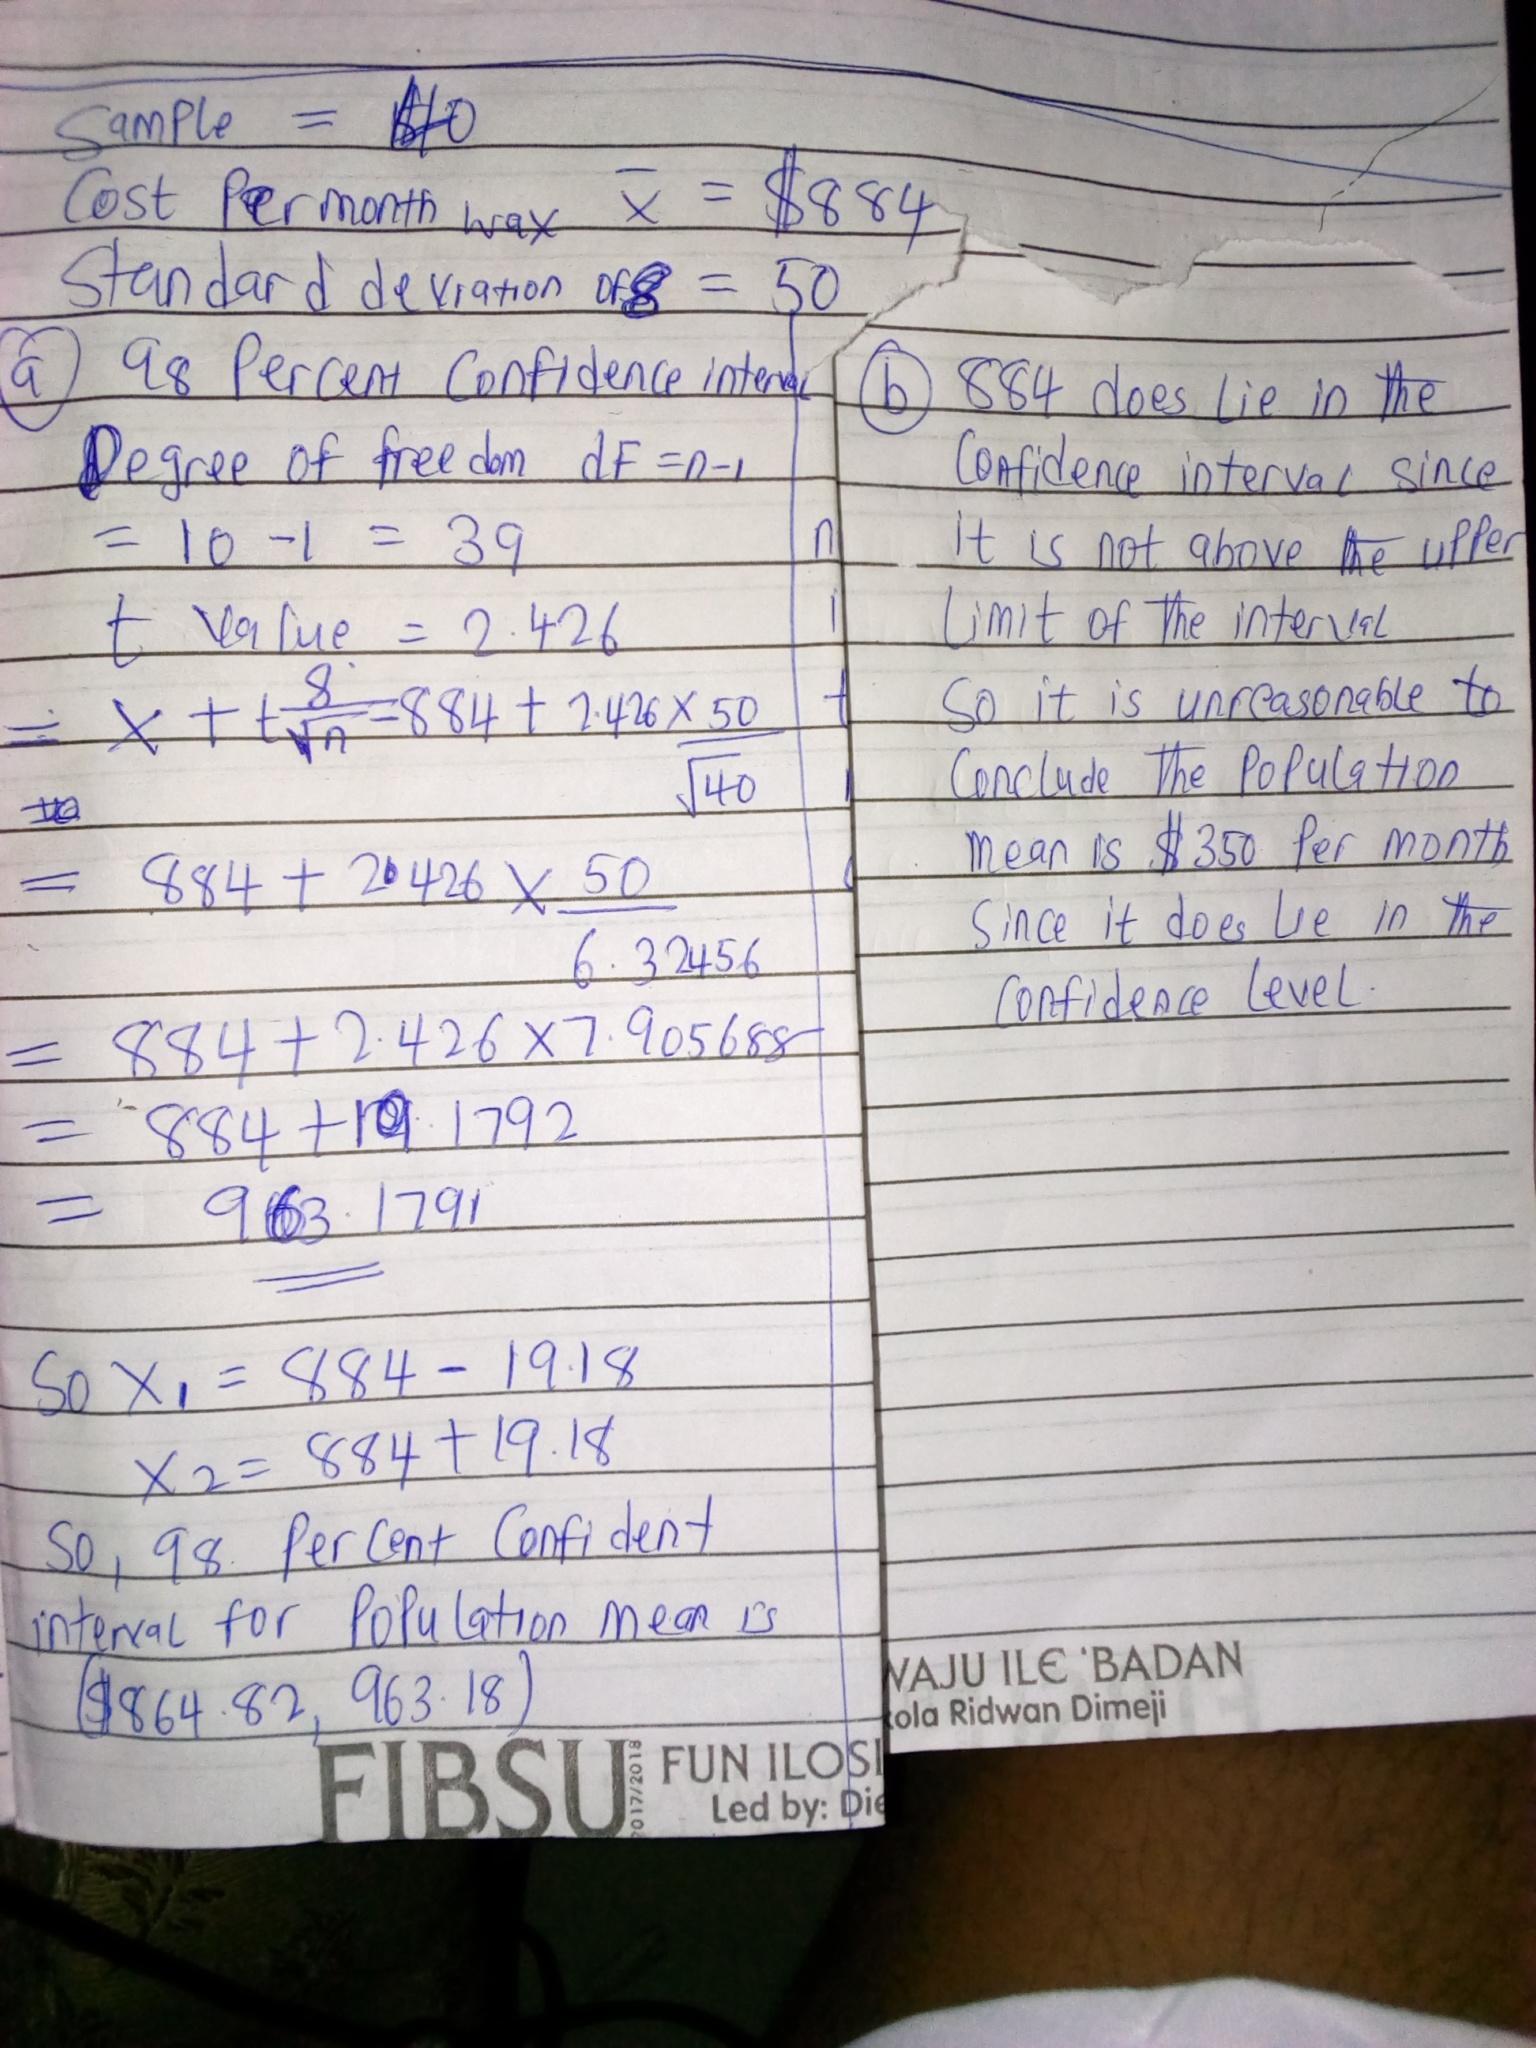 Sample = 40
Cost Per month wax x̄ = $884
Standard deviation of 8 = 50
(a) 98 Percent Confidence interval
Degree of freedom dF = n-1
= 10 -1 = 39
t value = 2.426
= x + t 8/√n = 884 + 2.426 x 50/√40
= 884 + 2.426 x 50/6.32456
= 884 + 2.426 x 7.905688
= 884 + 19.1792
= 963.1791
So x₁ = 884 - 19.18
x₂ = 884 + 19.18
So, 98 Percent Confident
interval for Population mean is
($864.82, 963.18)
FIBSU 2017/2018
FUN ILOSI
Led by: Die
(b) 884 does lie in the
Confidence interval since
it is not above the upper
Limit of the interval
So it is unreasonable to
Conclude the Population
mean is $350 Per month
Since it does lie in the
Confidence Level.
WAJU ILE 'BADAN
kola Ridwan Dimeji